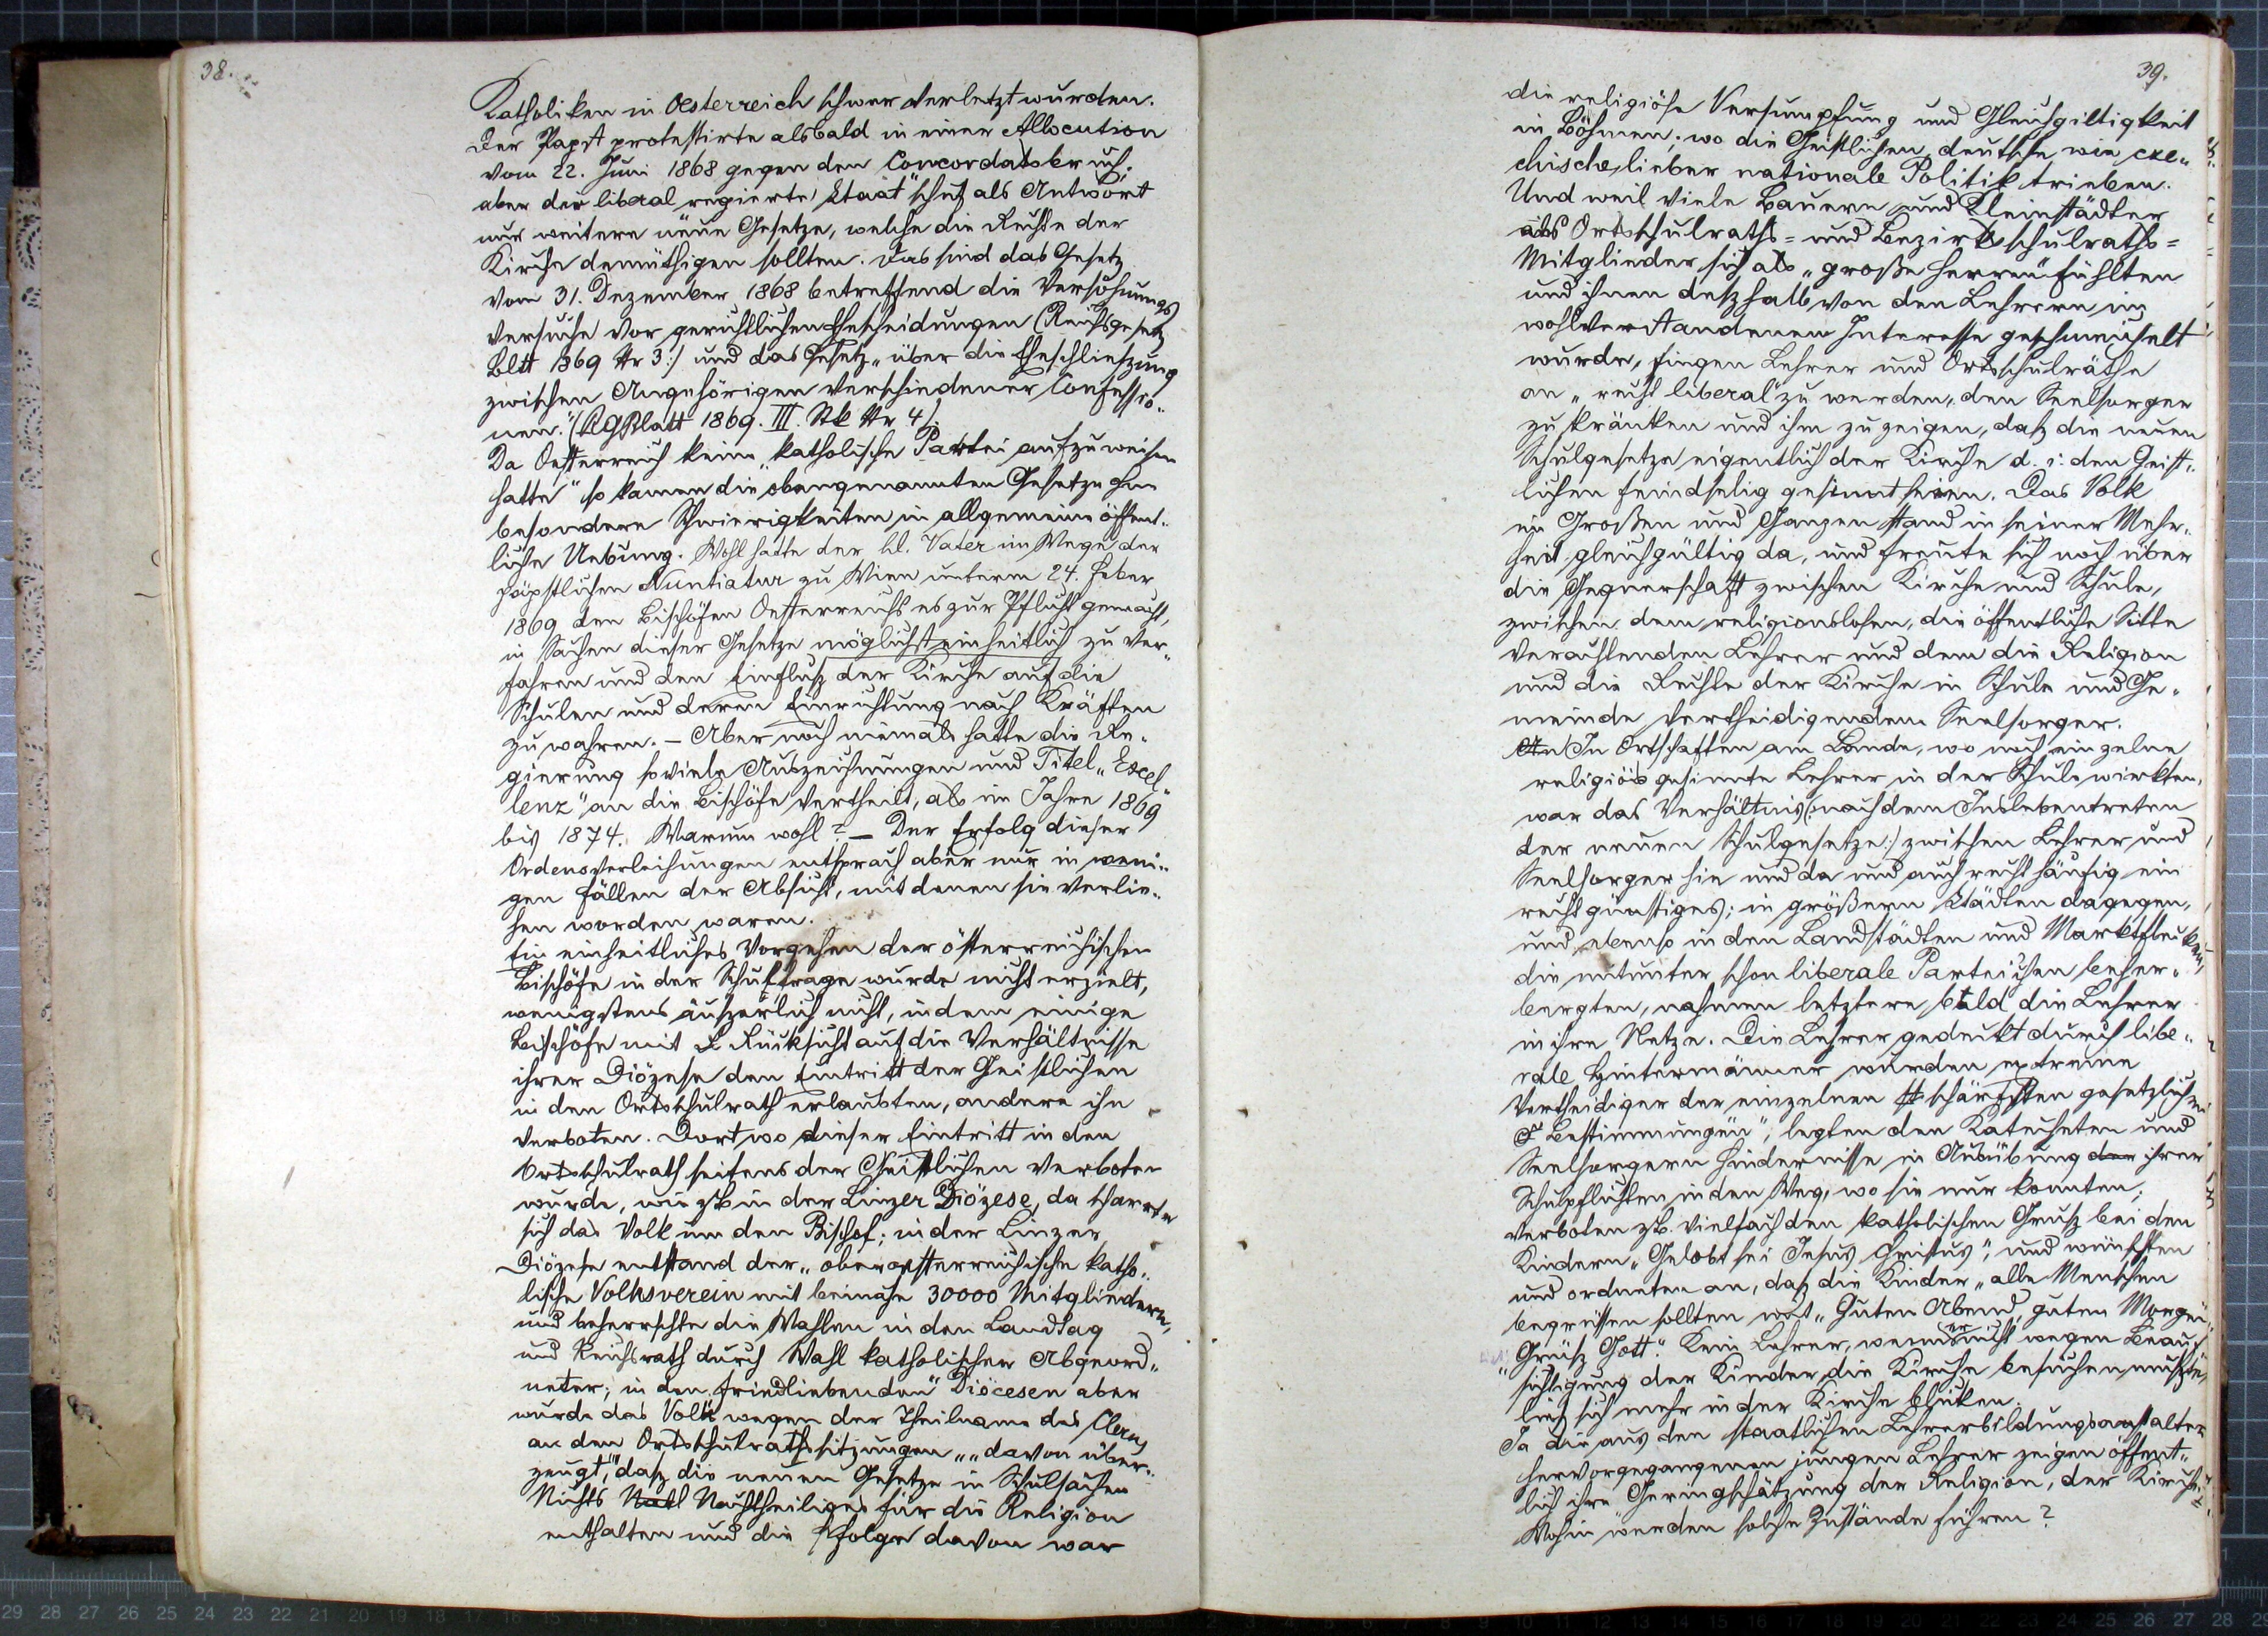 38.
Katholiken in Oesterreich schwer verletzt wurden.
Der Papst protestirte alsbald in einer Allocution
vom 22. Juni 1868 gegen den Concordatsbruch,
aber der liberal regierte "Staat" schuf als Antwort
nur weitere neue Gesetze, welche die Rechte der
Kirche demüthigen sollten. Das sind das Gesetz
vom 31. Dezember 1868 betreffend die Versöhnungs
versuche vor gerichtlichen Ehescheidungen (Reichsgesetz
Bltt 1869 Nr 3:/ und das Gesetz „über die Eheschließung
zwischen Angehörigen verschiedener Confessio„
nen." (RGBlatt 1869. III. Stk Nr 4/.
Da Oesterreich keine „katholische Partei aufzuweisen
hatte" so kamen die obengenannten Gesetze ohne
besondere Schwierigkeiten in allgemeine öffent„
liche Uebung. Wohl hatte der hl. Vater im Wege der
päpstlichen Nuntiatur zu Wien unterm 24. Feber
1869 den Bischöfen Oesterreichs es zur Pflicht gemacht,
in Sachen dieser Gesetze möglichst einheitlich zu ver„
fahren und den Einfluß der Kirche auf die
Schulen und deren Einrichtung nach Kräften
zu wahren. — Aber noch niemals hatte die Re„
gierung so viele Auszeichnungen und Titel „Excel„
lenz" an die Bischöfe vertheilt, als im Jahre 1869
bis 1874. Warum wohl? — Der Erfolg dieser
Ordensverleihungen entsprach aber nur in weni„
gen Fällen der Absicht, mit denen sie verlie„
hen worden waren.
Ein einheitliches Vorgehen der österreichischen
Bischöfe in der Schulfrage wurde nicht erzielt,
wenigstens äußerlich nicht, indem einige
Bischöfe mit Rücksicht auf die Verhältnisse
ihrer Diözese den Eintritt der Geistlichen
in den Ortsschulrath erlaubten, andere ihn
verboten. Dort wo dieser Eintritt in den
Ortsschulrath seitens der Geistlichen verboten
wurde, wie zb in der Linzer Diözese, da scharrte
sich das Volk um den Bischof; in der Linzer
Diözese entstand der „oberoesterreichische katho„
lische Volksverein mit beinahe 30000 Mitgliedern,
und beherrschte die Wahlen in den Landtag
und Reichsrath durch Wahl katholischer Abgeord„
neter; in den „friedliebenden" Diöcesen aber
wurde das Volk wegen der Theilname des Clerus
an den Ortsschulrathssitzungen „„davon über„
zeugt"", daß die neuen Gesetze in Schulsachen
Nichts Nachtheiliges für die Religion
enthalten und die Folge davon war
39.
die religiöse Versumpfung und Gleichgiltigkeit
in Böhmen; wo die Geistlichen, deutsche wie cze„
chische, lieber nationale Politik trieben.
Und weil viele Bauern und Kleinstädter
als Ortsschulraths= und Bezirksschulraths=
Mitglieder sich als „große Herren" fühlten
und ihnen deßhalb von den Lehrern im
wohlverstandenen Interesse geschmeichelt
wurde, fingen Lehrer und Ortsschulräthe
an „recht liberal" zu werden, den Seelsorger
zu kränken und ihm zu zeigen, daß die neuen
Schulgesetze eigentlich der Kirche d. i. den Geist„
lichen feindselig gesinnt seien. Das Volk
im Großen und Ganzen stand in seiner Mehr„
heit gleichgültig da, und freute sich noch über
die Gegnerschaft zwischen Kirche und Schule,
zwischen dem religionslosen, die öffentliche Sitte
verachtenden Lehrer und dem die Religion
und die Rechte der Kirche in Schule und Ge„
meinde vertheidigendem Seelsorger.
An In Ortschaften am Lande, wo noch einzelne
religiös gesinnte Lehrer in der Schule wirkten,
war das Verhältnis (: nach dem Inslebentreten
der neuen Schulgesetze:) zwischen Lehrer und
Seelsorger hie und da und auch recht häufig ein
recht günstiges; in größern Städten dagegen,
und ebenso in den Landstädten und Marktflecken,
die mitunter schon liberale Parteichen beher„
bergten, nahmen letztere bald die Lehrer
in ihre Netze. Die Lehrer gedeckt durch libe„
rale Hintermänner wurden extreme
Vertheidiger der einzelnen schärfsten gesetzlichen
Bestimmungen", legten den Katecheten und
Seelsorgern Hindernisse in Ausübung der ihrer
Schulpflichten in den Weg, wo sie nur konnten;
verboten zb. vielfach den katholischen Gruß bei den
Kindern „Gelobt sei Jesus Christus"; und wünschten
und ordneten an, daß die Kinder „alle Menschen
begrüssen sollten mit „Guten Abend, guten Morgen,
„Grüß Gott." Kein Lehrer, wenn er nicht wegen Beauf„
sichtigung der Kinder die Kirche besuchen mußte,
ließ sich mehr in der Kirche blicken.
Ja die aus den staatlichen Lehrerbildungsanstalten
hervorgegangenen jungen Lehrer zeigen öffent„
lich ihre Geringschätzung der Religion, der Kirche.
Wohin werden solche Zustände führen?